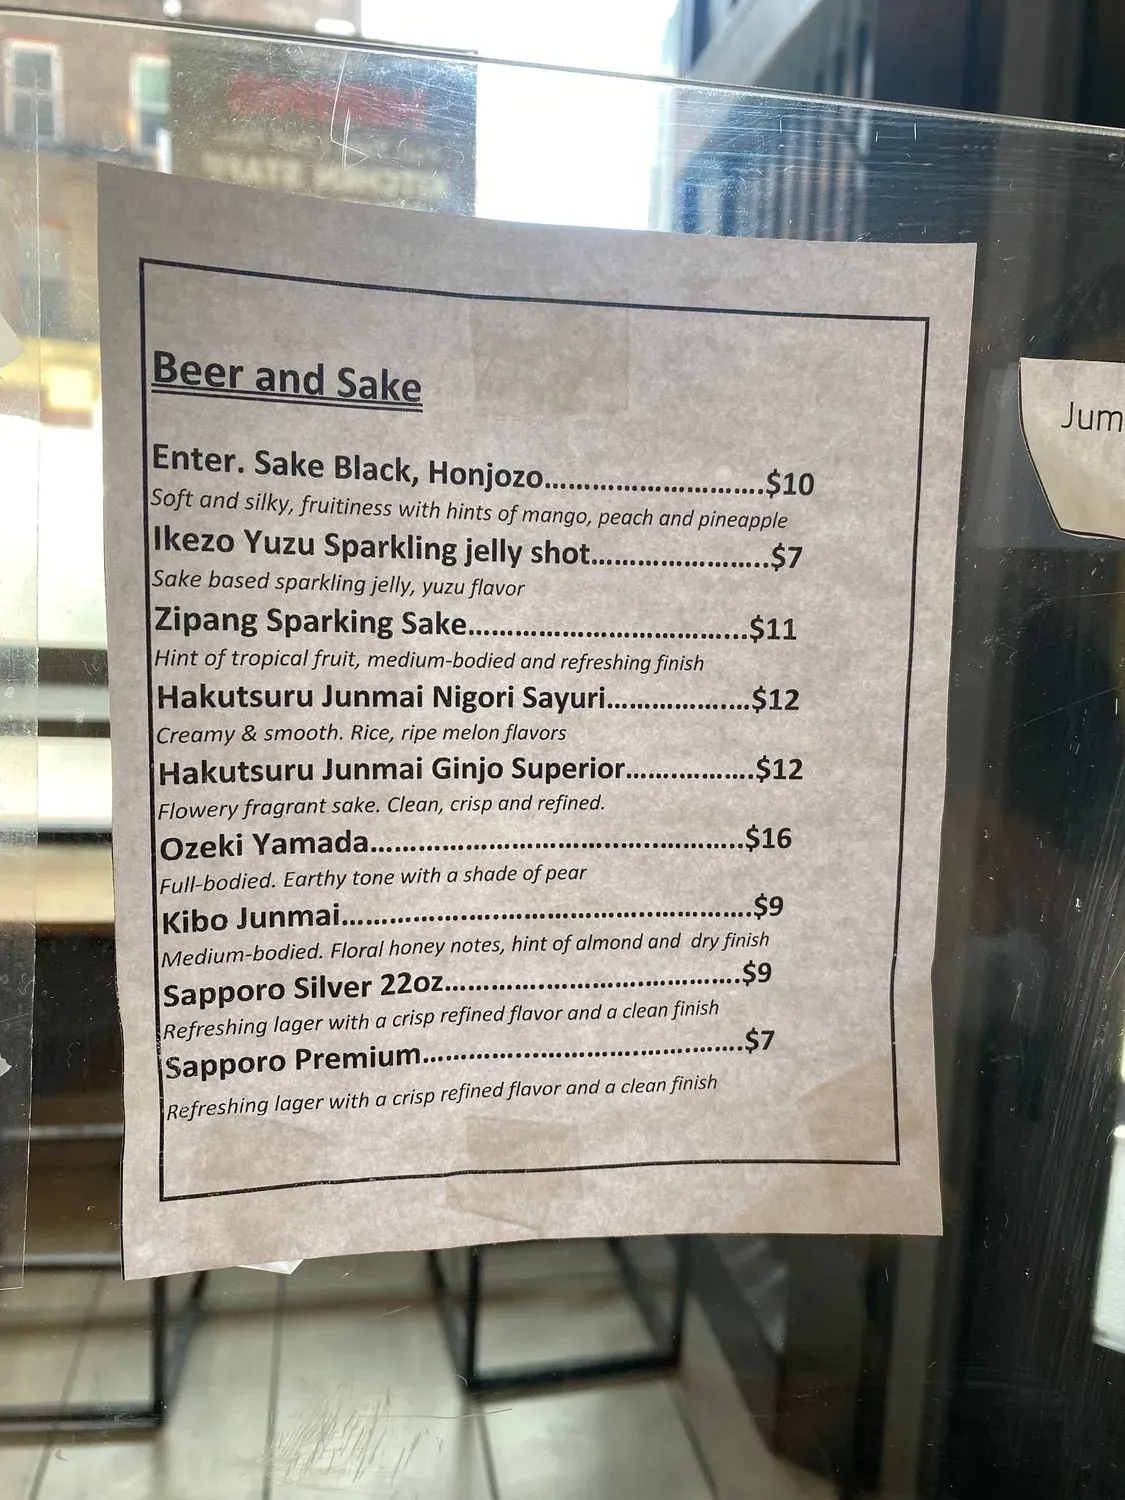 Beer and Sake
Enter. Sake Black, Honjozo............................$10
Soft and silky, fruitiness with hints of mango, peach and pineapple
Ikezo Yuzu Sparkling jelly shot.......................$7
Sake based sparkling jelly, yuzu flavor
Zipang Sparking Sake...................................$11
Hint of tropical fruit, medium-bodied and refreshing finish
Hakutsuru Junmai Nigori Sayuri..................$12
Creamy & smooth. Rice, ripe melon flavors
Hakutsuru Junmai Ginjo Superior................$12
Flowery fragrant sake. Clean, crisp and refined.
Ozeki Yamada...............................................$16
Full-bodied. Earthy tone with a shade of pear
Kibo Junmai....................................................$9
Medium-bodied. Floral honey notes, hint of almond and  dry finish
Sapporo Silver 22oz.....................................$9
Refreshing lager with a crisp refined flavor and a clean finish
Sapporo Premium........................................$7
Refreshing lager with a crisp refined flavor and a clean finish
Jum